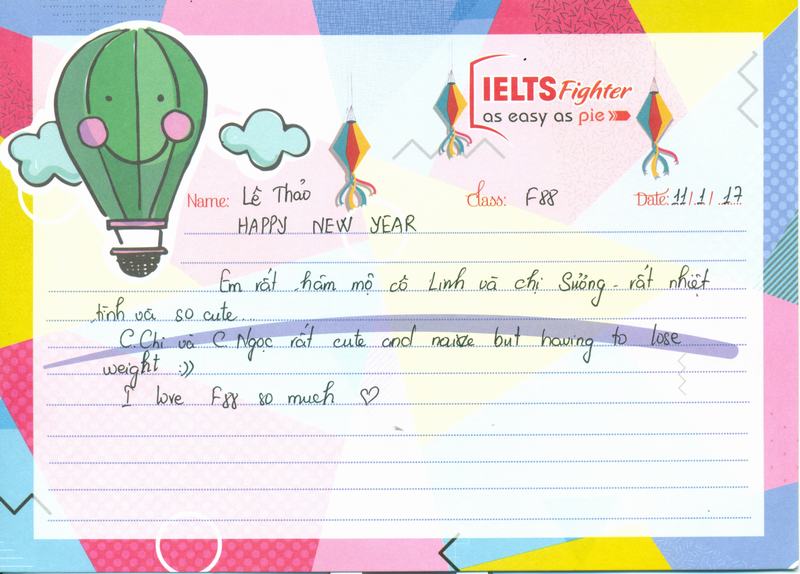 IELTS Fighter
as easy as pie
Name: Lê Thảo Class: F88 Date: 11/1/17
HAPPY NEW YEAR
Em rất hâm mộ cô Linh và chị Sương - rất nhiệt
tình và so cute...
C.Chi và C.Ngọc rất cute and but having to lose
weight :))
I love F88 so much ♡